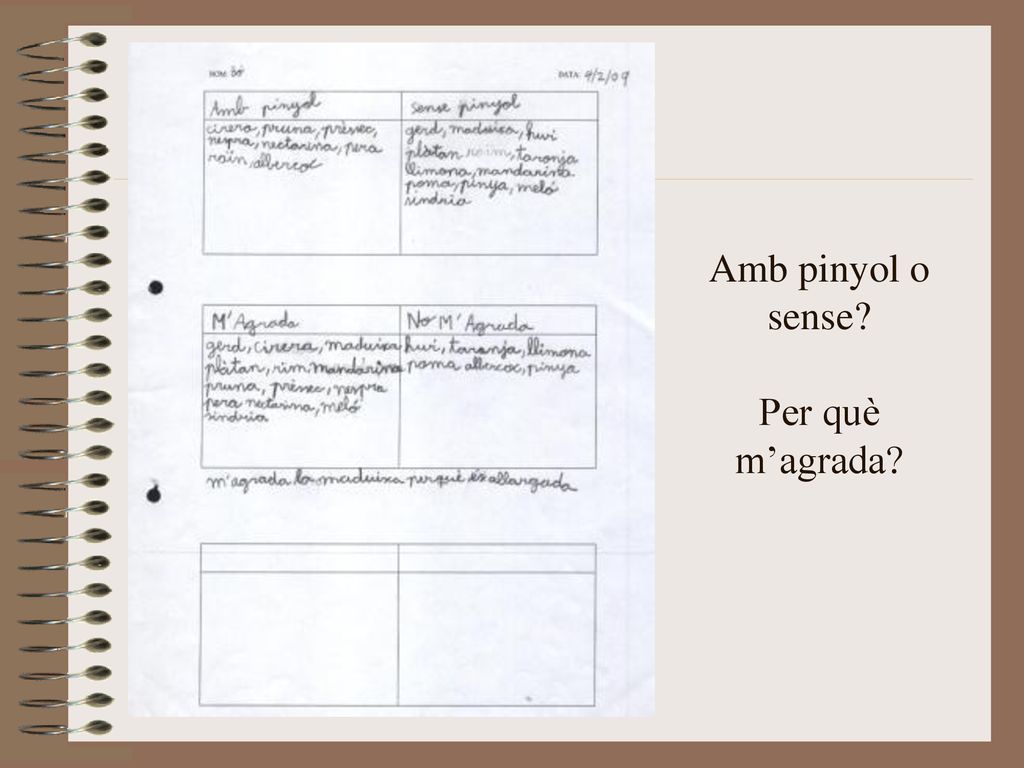 NOM:
DATA: 9/2/09
Amb pinyol
sense pinyol
cirera, pruna, prèssec,
nespra, nectarina, pera
raïn, albercoc
gerd, maduixa, kwi
plàtan raïm, taronja
llimona, mandarina
poma, pinya, meló
síndria
M'Agrada
No M'Agrada
gerd, cirera, maduixa
plàtan, rim, mandarina
pruna, prèssec, nespra
pera nectarina, meló
síndria
kuvi, taronja, llimona
poma albercoc, pinya
m'agrada la maduixa perquè és allargada
Amb pinyol o
sense?
Per què
m'agrada?